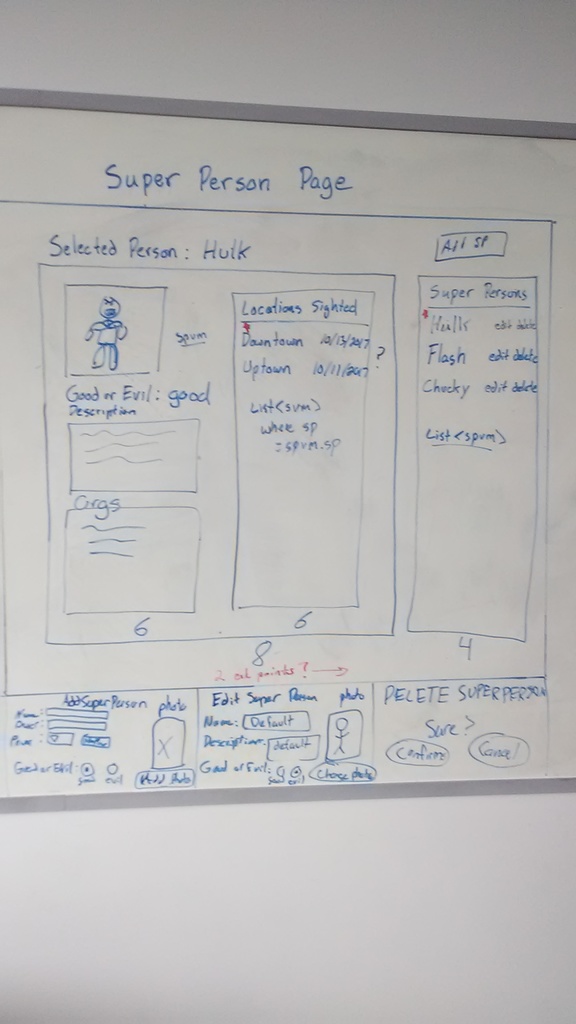 Super Person Page
Selected Person: Hulk
Add SP
spvm
Good or Evil: good
Description
Orgs
6
Locations Sighted
Downtown 10/13/2017
Uptown 10/11/2017
?
List<svm>
where sp
=spvm.sp
6
8
Super Persons
edit delete
Flash edit delete
Chucky edit delete
List<spvm>
4
2 end points?
Add Super Person photo
Name:
Power:
Good or Evil: good evil
Add Photo
Edit Super Person photo
Name: Default
Description: default
Good or Evil: good evil
Chose photo
DELETE SUPERPERSON
Sure?
Confirm Cancel